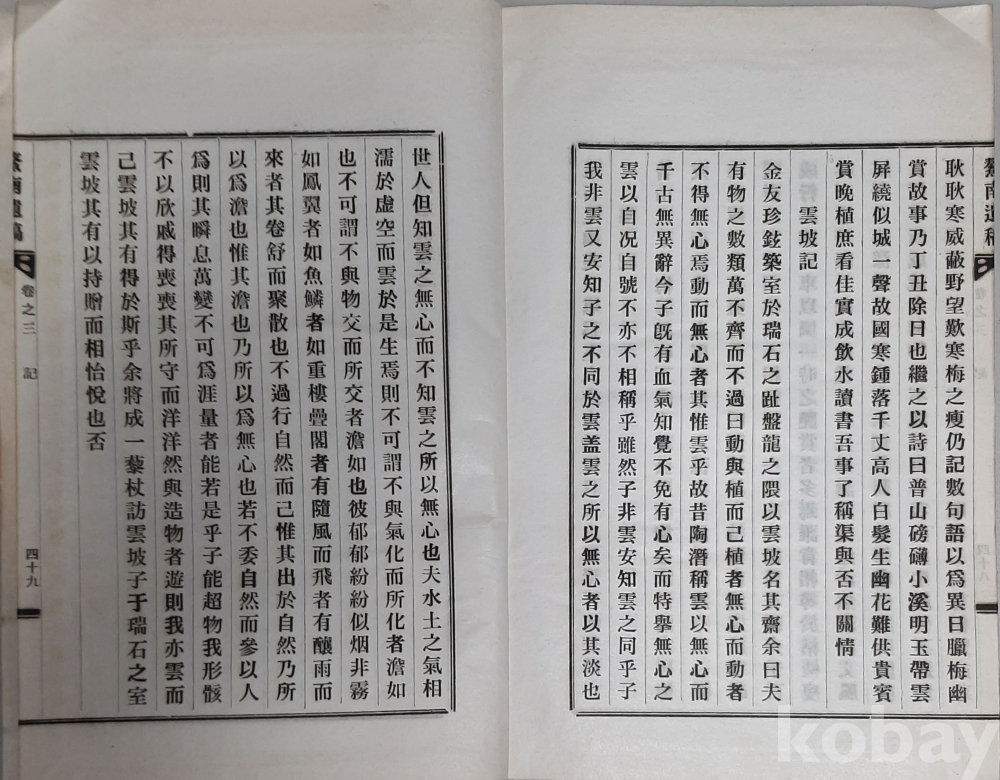 耿耿寒威蔽野望歎寒梅之瘦仍記數句語以爲異日臘梅幽
賞故事乃丁丑除日也繼之以詩曰普山磅礴小溪明玉帶雲
屏繞似城一聲故國寒鍾落千丈高人白髮生幽花難供貴賓
賞晚植庶看佳實成飲水讀書吾事了稱渠與否不關情
雲坡記
金友珍鉉築室於瑞石之趾盤龍之隈以雲坡名其齋余曰夫
有物之數類萬不齊而不過曰動與植而己植者無心而動者
不得無心焉動而無心者其惟雲乎故昔陶潛稱雲以無心而
千古無異辭今子旣有血氣知覺不免有心矣而特擧無心之
雲以自况自號不亦不相稱乎雖然子非雲安知雲之同乎子
我非雲又安知子之不同於雲盖雲之所以無心者以其淡也
世人但知雲之無心而不知雲之所以無心也夫水土之氣相
濡於虛空而雲於是生焉則不可謂不與氣化而所化者澹如
也不可謂不與物交而所交者澹如也彼郁郁紛紛似烟非霧
如鳳翼者如魚鱗者如重樓疊閣者有隨風而飛者有釀雨而
來者其卷舒而聚散也不過行自然而己惟其出於自然乃所
以爲澹也惟其澹也乃所以爲無心也若不委自然而參以人
爲則其瞬息萬變不可爲涯量者能若是乎子能超物我形骸
不以欣戚得喪喪其所守而洋洋然與造物者遊則我亦雲而
己雲坡其有得於斯乎余將成一藜杖訪雲坡子于瑞石之室
雲坡其有以持贈而相怡悅也否
南遺稿
卷之三 記
四十九
kobay